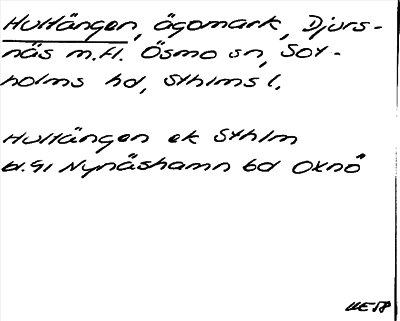 Hultängen, ägomark, Djurs-
näs m.fl. Ösmo sn, Sot-
holms hd, Sthlms l.
Hultängen ek Sthlm
bl.91 Nynäshamn bd Oxnö